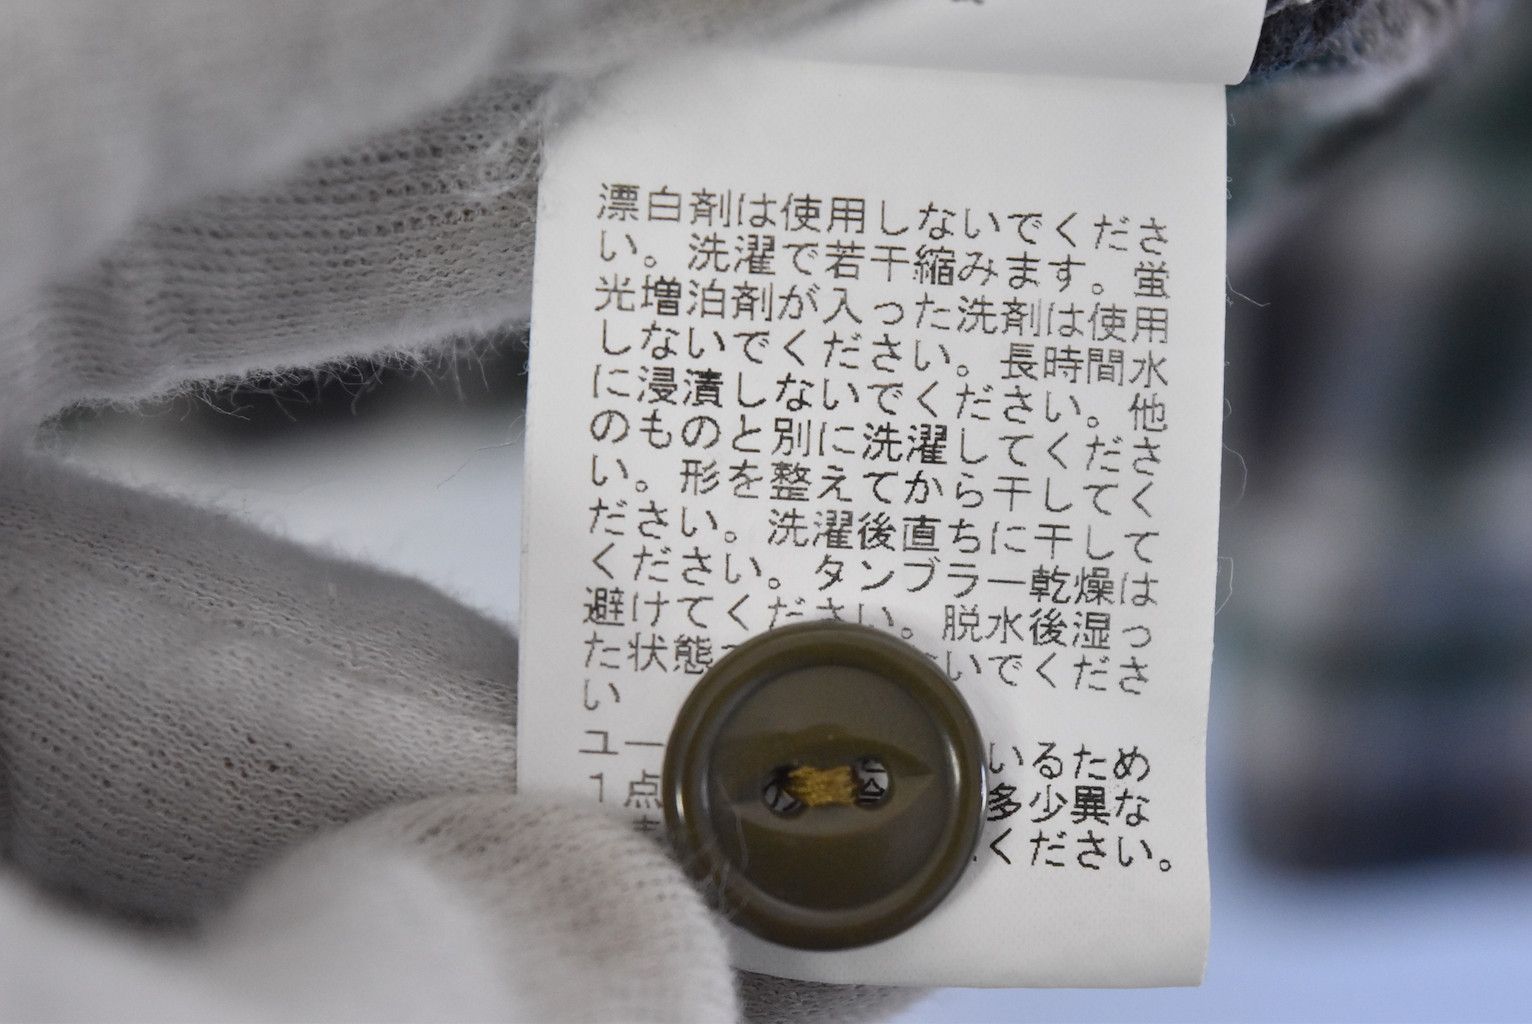 漂白剤は使用しないでくださ
い。洗濯で若干縮みます。蛍
光増泊剤が入った洗剤は使用
しないでください。長時間水
に浸漬しないでください。他
のものと別に洗濯してくださ
い。形を整えてから干してく
ださい。洗濯後直ちに干して
ください。タンブラー乾燥は
避けてください。脱水後湿っ
た状態 いでくださ
い
ユー いるため
1点 多少異な
ください。